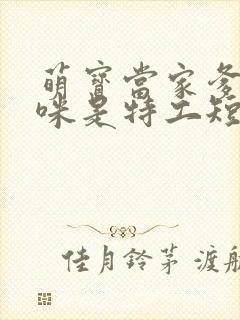 萌寶當家爹
咪是特工短
佳月鈴茅 渡航